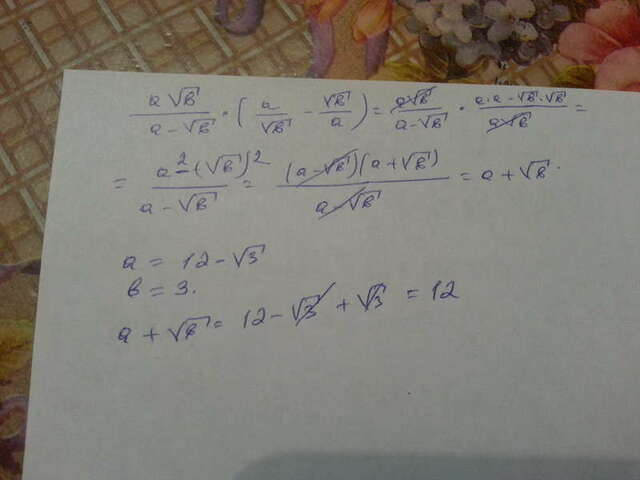 a√b / (a - √b) · (a/√b - √b/a) = a√b / (a - √b) · (a·a - √b·√b) / a√b =
= (a² - (√b)²) / (a - √b) = (a - √b)(a + √b) / (a - √b) = a + √b.
a = 12 - √3
b = 3.
a + √b = 12 - √3 + √3 = 12